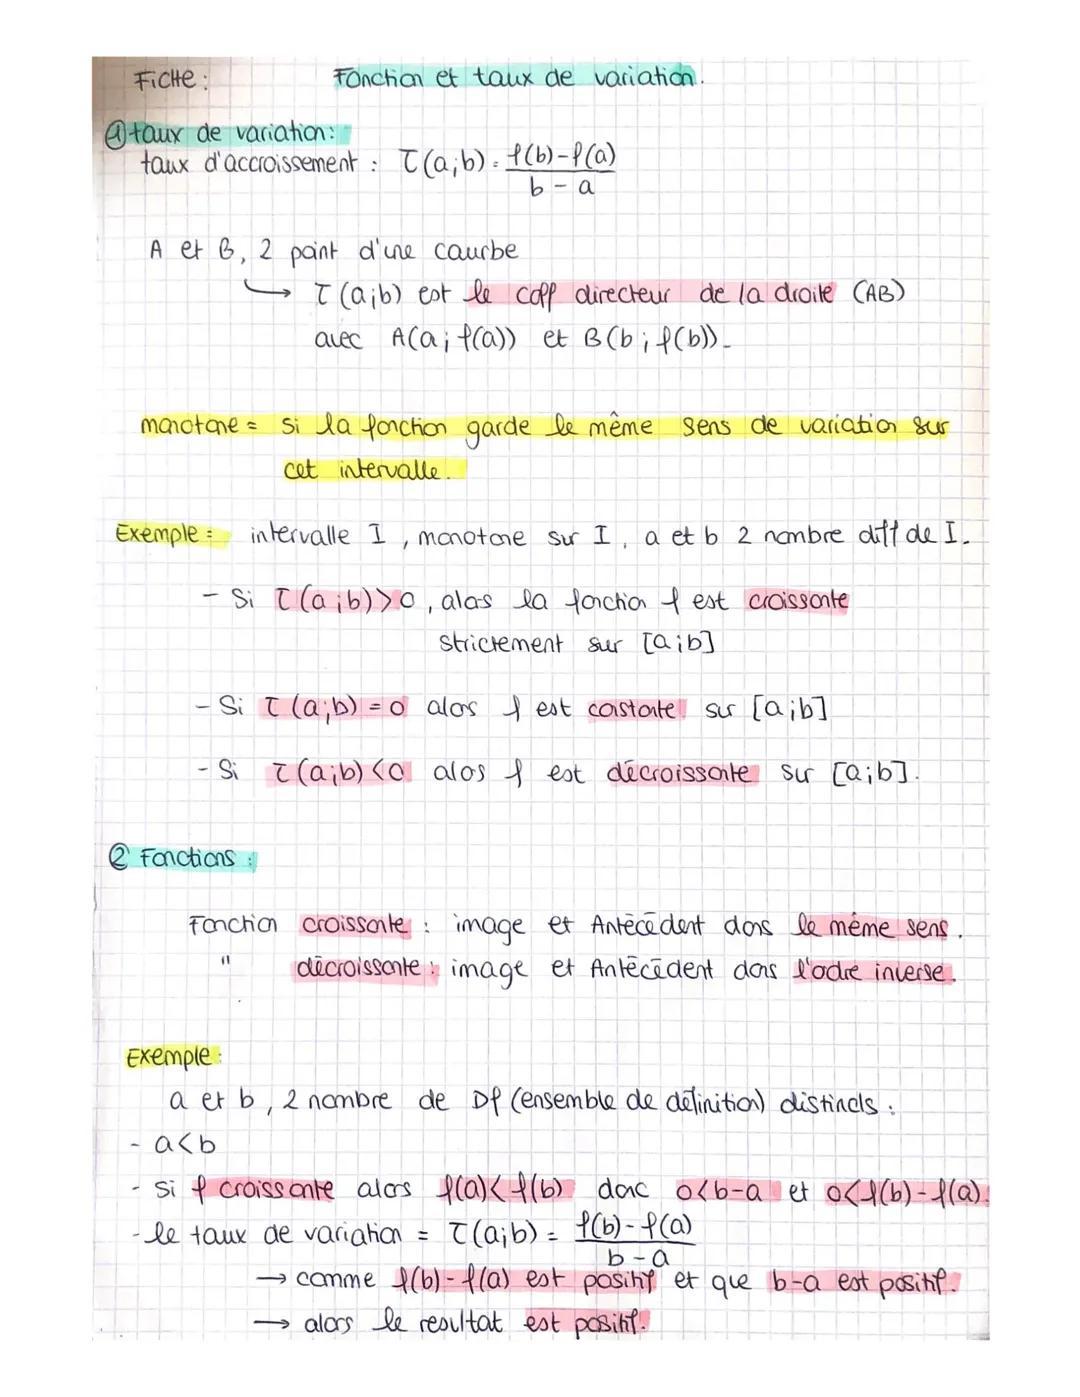 Fiche : Fonction et taux de variation.
① taux de variation :
taux d'accroissement : τ(a;b) = f(b)-f(a) / b-a
A et B, 2 point d'une courbe
↳ τ(a;b) est le coff directeur de la droite (AB)
avec A(a; f(a)) et B(b; f(b)).
monotone = si la fonction garde le même sens de variation sur
cet intervalle.
Exemple : intervalle I, monotone sur I, a et b 2 nombre diff de I.
- Si τ(a;b)>0, alors la fonction f est croissante
strictement sur [a;b]
- Si τ(a;b) = 0 alors f est constante sur [a;b]
- Si τ(a;b)<0 alos f est décroissante sur [a;b].
② Fonctions :
Fonction croissante : image et Antécédent dans le même sens.
" décroissante : image et Antécédent dans l'odre inverse.
Exemple :
a et b, 2 nombre de Df (ensemble de définition) distincts :
- a<b
- si f croissante alors f(a)<f(b) donc 0<b-a et 0<f(b)-f(a).
- le taux de variation = τ(a;b) = f(b)-f(a) / b-a
→ comme f(b)-f(a) est positif et que b-a est positif.
→ alors le resultat est positif.